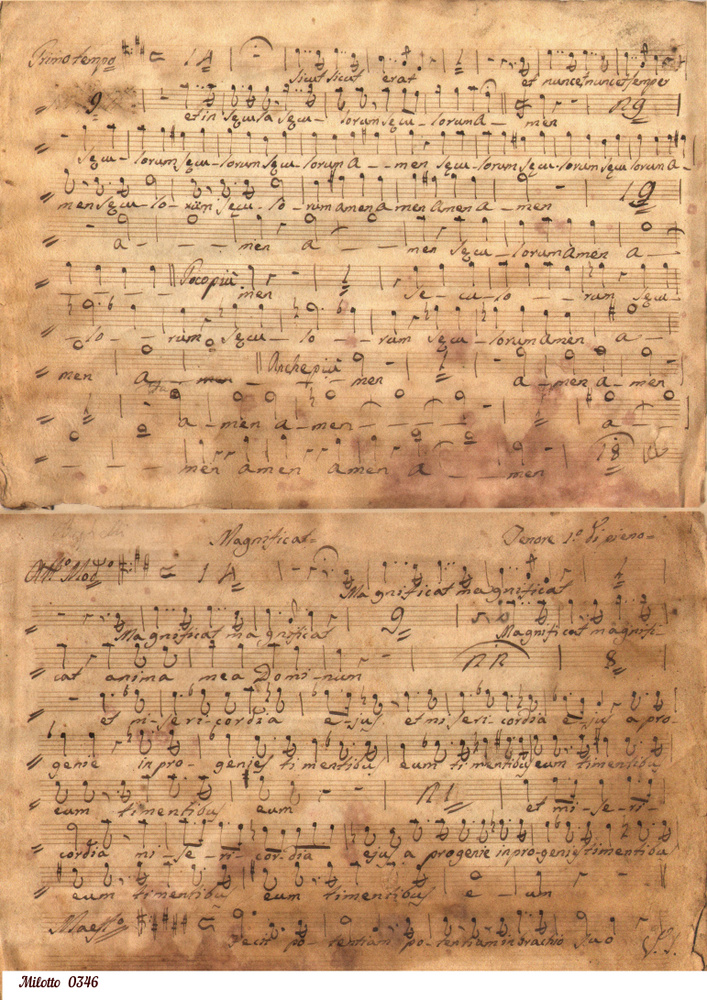 Primo tempo 14
sicut sicut erat et nunc et nunc et semper
9 29
et in secula secu- lorum secu- lorum A- men
secu- lorum secu-lorum secu-lorum A- - men secu-lorum secu-lorum secu lorum A-
19
men secu-lo- rum secu-lo- rum amen amen Amen A- men
A- - - men A - - men secu-lorum Amen A -
Poco più
- - - men se- cu-lo - - rum secu-
- lo- - rum secu- lo - - rum secu- lorum Amen A -
Anche più
men A - men - - men A - men A - men
A - men A - men - - - - A -
- - - men Amen Amen A - - men 18
Magnificat= Tenore 1.º di pieno=
All.º Mod.to 14
Magnificat magnificat
9
Magnificat magnificat Magnificat magnifi-
cat anima mea Domi-num 8
et mi-se ri-cordia e-jus et mi.seri-cordia e-jus a pro-
genie in pro- genies timentibus eum timentibus eum timentibus
eum timentibus eum et mi-se-ri-
cordia mi-se-ri-cor-dia ejus a progenie in pro-genies timentibus
eum timentibus eum timentibus e - um
Maes.º
Fecit po- tentiam po-tentiam in brachio suo
Milotto 0346